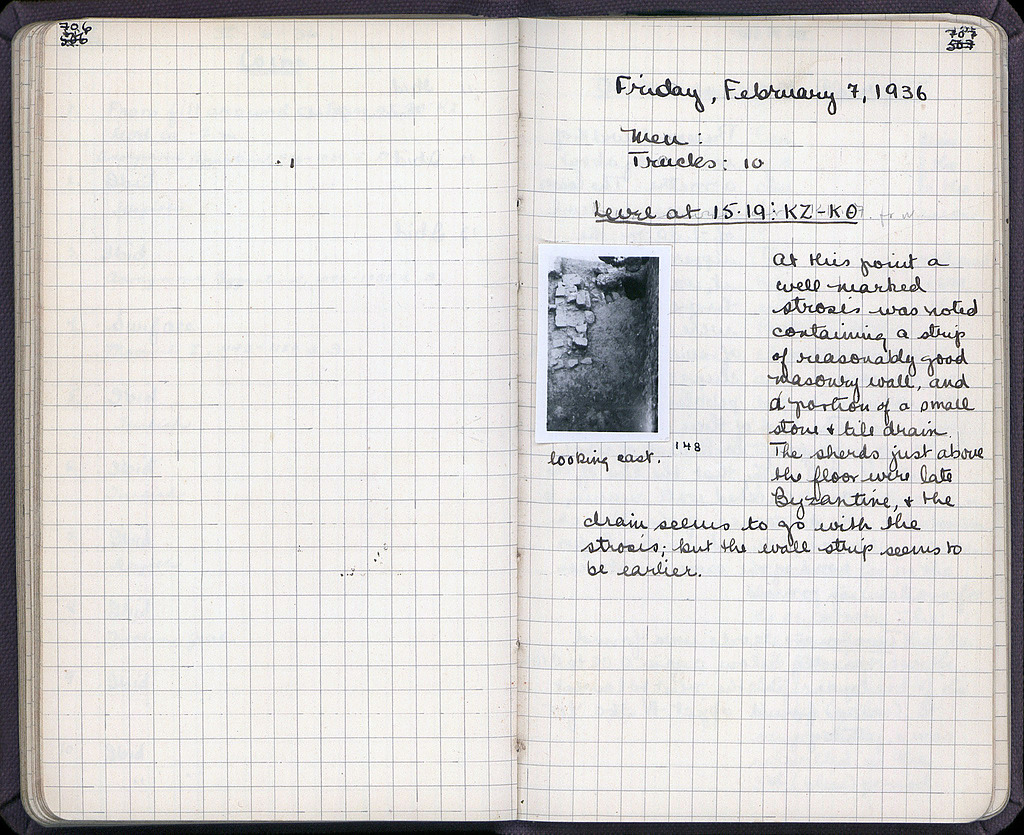 706
506
707
507
Friday, February 7, 1936
Men:
Trucks: 10
Level at 15·19: KZ-KΘ
At this point a
well marked
strosis was noted
containing a strip
of reasonably good
masonry wall, and
a portion of a small
stone & tile drain.
The sherds just above
the floor were late
Byzantine, & the
drain seems to go with the
strosis; but the wall strip seems to
be earlier.
looking east.
148